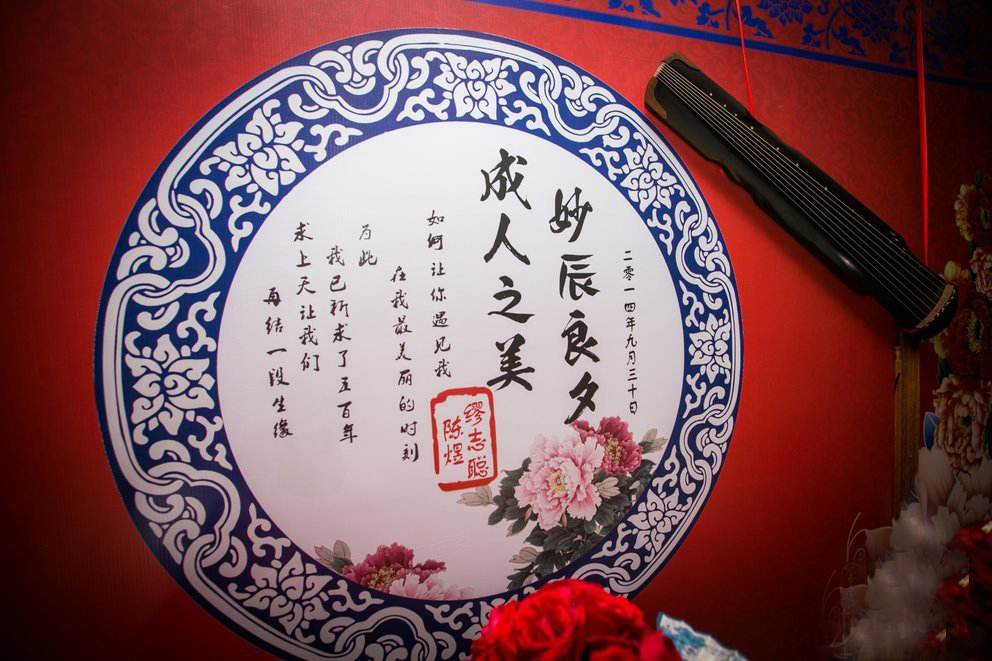 二零一四年九月三十日
妙辰良夕
成人之美
缪志聪
陈煜
如何让你遇见我
在我最美丽的时刻
为此
我已祈求了五百年
求上天让我们
再结一段生缘